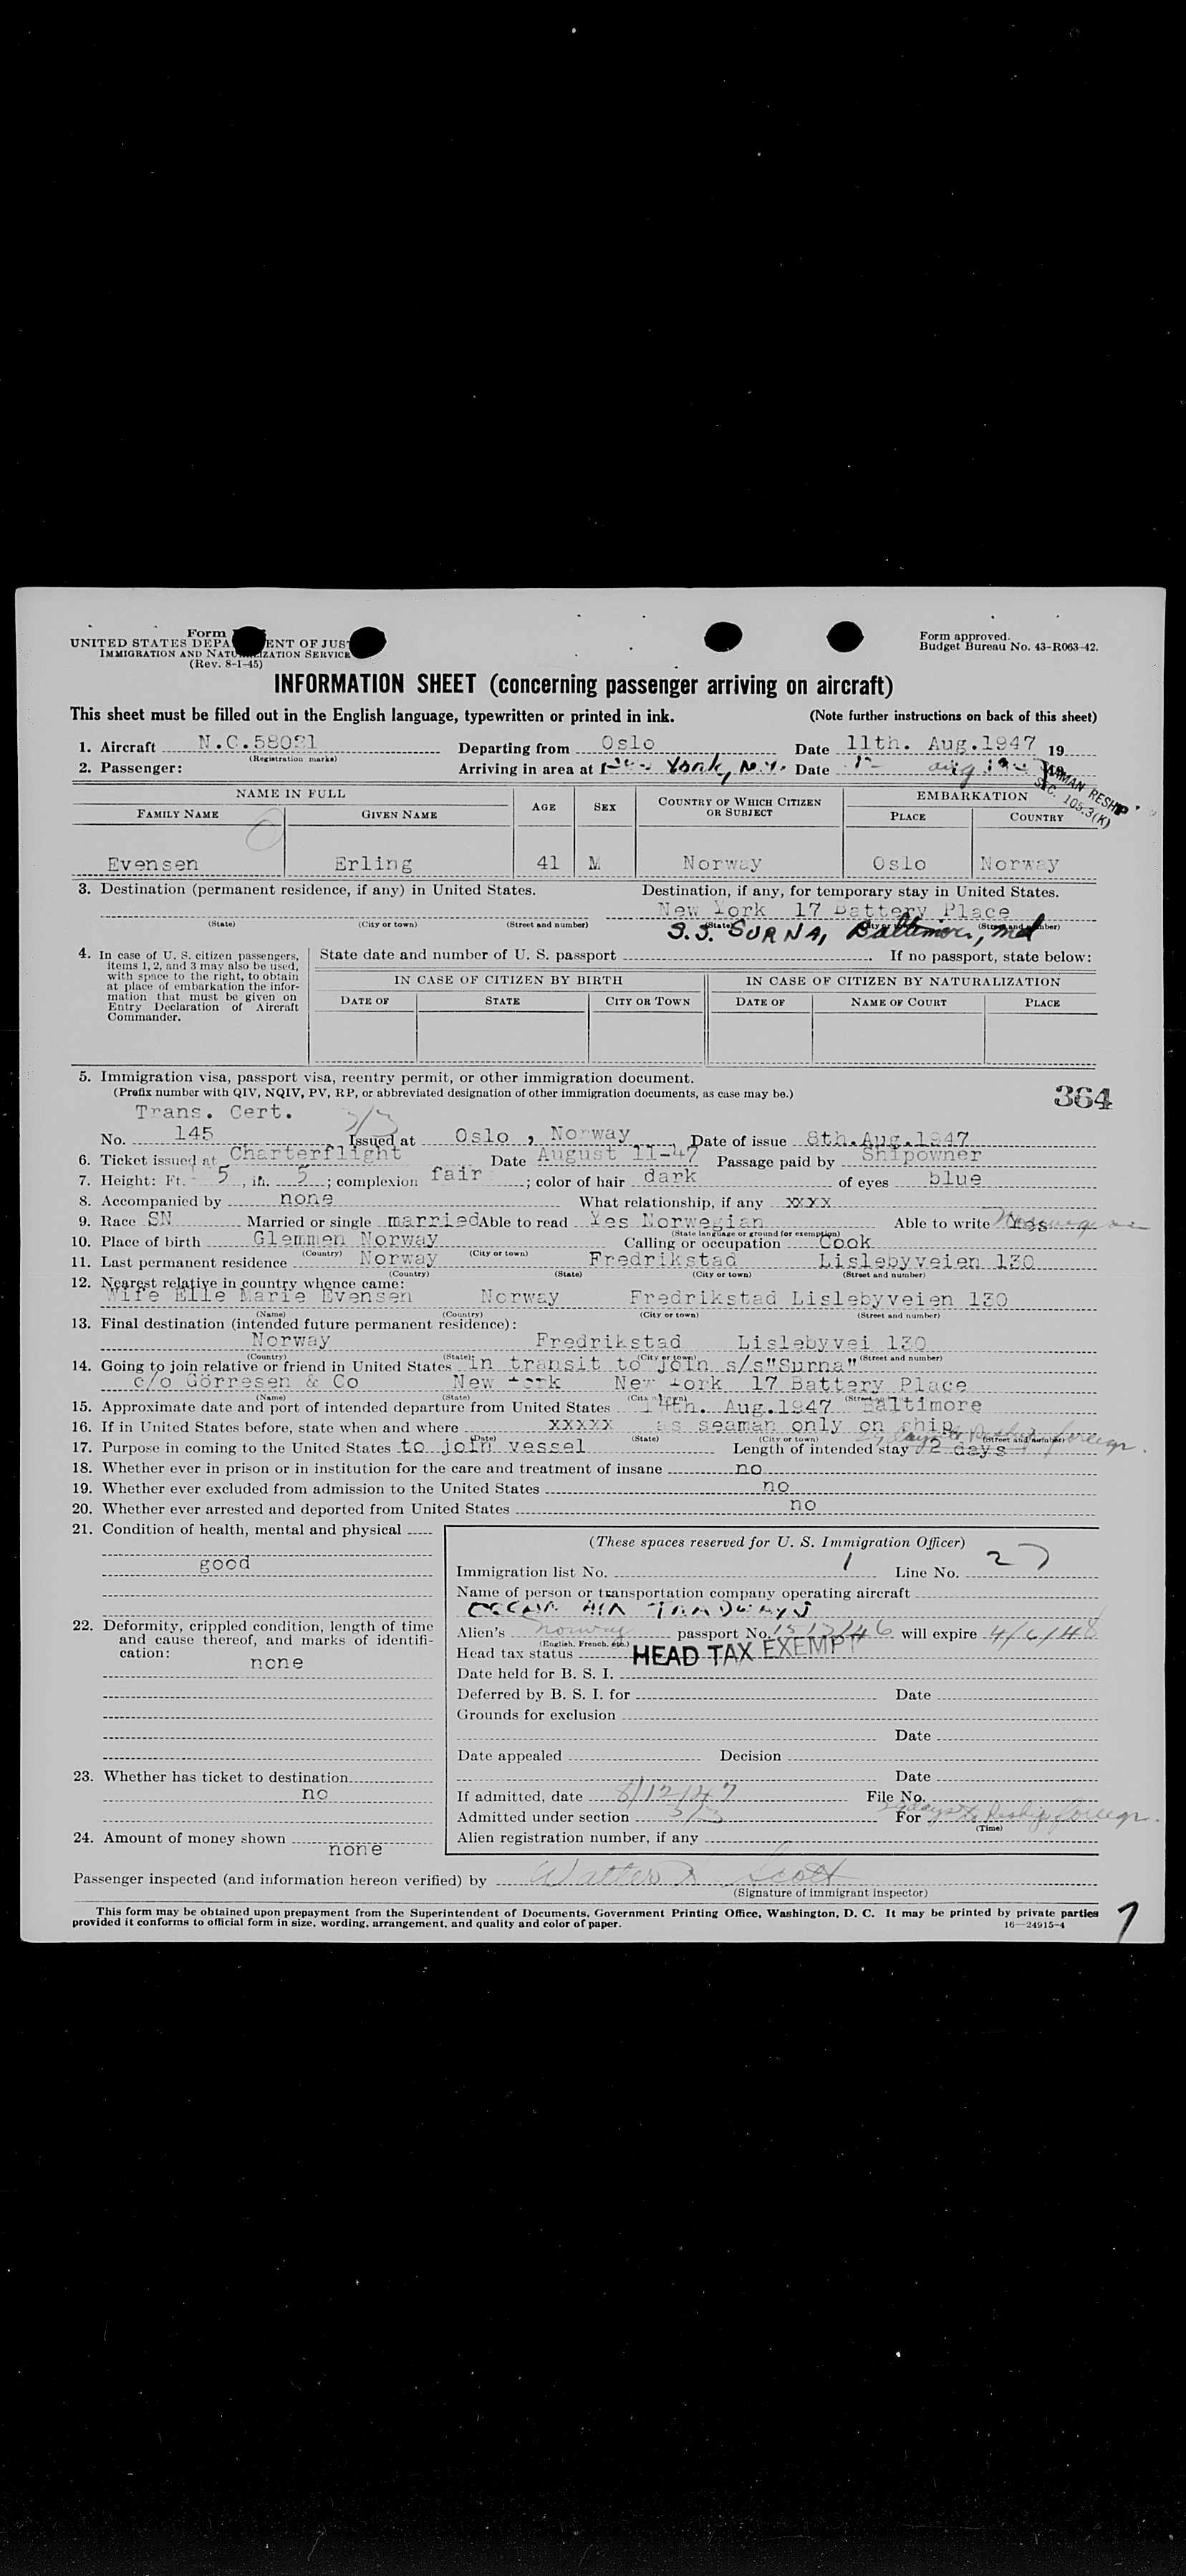 Form
UNITED STATES DEPA ENT OF JUS
IMMIGRATION AND NATU IZATION SERVICE
(Rev. 8-1-45)
Form approved.
Budget Bureau No. 43-R063-42.
INFORMATION SHEET (concerning passenger arriving on aircraft)
This sheet must be filled out in the English language, typewritten or printed in ink. (Note further instructions on back of this sheet)
1. Aircraft N.C.58021 Departing from Oslo Date 11th. Aug.1947 19
(Registration marks)
2. Passenger: Arriving in area at York, N.Y. Date Aug
SEAMAN RESHIP
SEC. 105.3(K)
NAME IN FULL AGE SEX COUNTRY OF WHICH CITIZEN OR SUBJECT EMBARKATION
FAMILY NAME GIVEN NAME PLACE COUNTRY
Evensen Erling 41 M Norway Oslo Norway
3. Destination (permanent residence, if any) in United States. Destination, if any, for temporary stay in United States.
New York 17 Battery Place
(State) (City or town) (Street and number) (State) (City or town) (Street and number)
S.S. SURNA, Baltimore, Md
4. In case of U. S. citizen passengers, items 1, 2, and 3 may also be used, with space to the right, to obtain at place of embarkation the information that must be given on Entry Declaration of Aircraft Commander.
State date and number of U. S. passport If no passport, state below:
IN CASE OF CITIZEN BY BIRTH IN CASE OF CITIZEN BY NATURALIZATION
DATE OF STATE CITY OR TOWN DATE OF NAME OF COURT PLACE
5. Immigration visa, passport visa, reentry permit, or other immigration document.
(Prefix number with QIV, NQIV, PV, RP, or abbreviated designation of other immigration documents, as case may be.)
364
Trans. Cert. 3/3
No. 145 Issued at Oslo , Norway Date of issue 8th.Aug.1947
6. Ticket issued at Charterflight Date August 11-47 Passage paid by Shipowner
7. Height: Ft. 5, in. 5; complexion fair; color of hair dark of eyes blue
8. Accompanied by none What relationship, if any xxxx
9. Race SN Married or single married Able to read Yes Norwegian Able to write Yes Norwegian
(State language or ground for exemption)
10. Place of birth Glemmen Norway Calling or occupation Cook
(Country) (City or town)
11. Last permanent residence Norway Fredrikstad Lislebyveien 130
(Country) (State) (City or town) (Street and number)
12. Nearest relative in country whence came:
Wife Elle Marie Evensen Norway Fredrikstad Lislebyveien 130
(Name) (Country) (City or town) (Street and number)
13. Final destination (intended future permanent residence):
Norway Fredrikstad Lislebyvei 130
(Country) (State) (City or town) (Street and number)
14. Going to join relative or friend in United States in transit to join s/s"Surna"
c/o Görresen & Co New York New York 17 Battery Place
(Name) (State) (City or town) (Street and number)
15. Approximate date and port of intended departure from United States 14th. Aug.1947 Baltimore
16. If in United States before, state when and where xxxxx as seaman only on ship
(Date) (State) (City or town) (Street and number)
17. Purpose in coming to the United States to join vessel Length of intended stay 2 days
18. Whether ever in prison or in institution for the care and treatment of insane no
19. Whether ever excluded from admission to the United States no
20. Whether ever arrested and deported from United States no
21. Condition of health, mental and physical
good
22. Deformity, crippled condition, length of time and cause thereof, and marks of identification:
none
23. Whether has ticket to destination
no
24. Amount of money shown
none
(These spaces reserved for U. S. Immigration Officer)
Immigration list No. 1 Line No. 27
Name of person or transportation company operating aircraft
OCEAN AIR TRADEWAYS
Alien's Norway passport No. will expire 4/6/48
(English, French, etc.)
Head tax status HEAD TAX EXEMPT
Date held for B. S. I.
Deferred by B. S. I. for Date
Grounds for exclusion
Date
Date appealed Decision
Date
If admitted, date 8/12/47 File No.
Admitted under section 3/3 For days to Reship foreign
(Time)
Alien registration number, if any
Passenger inspected (and information hereon verified) by Walter Scott
(Signature of immigrant inspector)
This form may be obtained upon prepayment from the Superintendent of Documents, Government Printing Office, Washington, D. C. It may be printed by private parties
provided it conforms to official form in size, wording, arrangement, and quality and color of paper. 16—24915-4
7